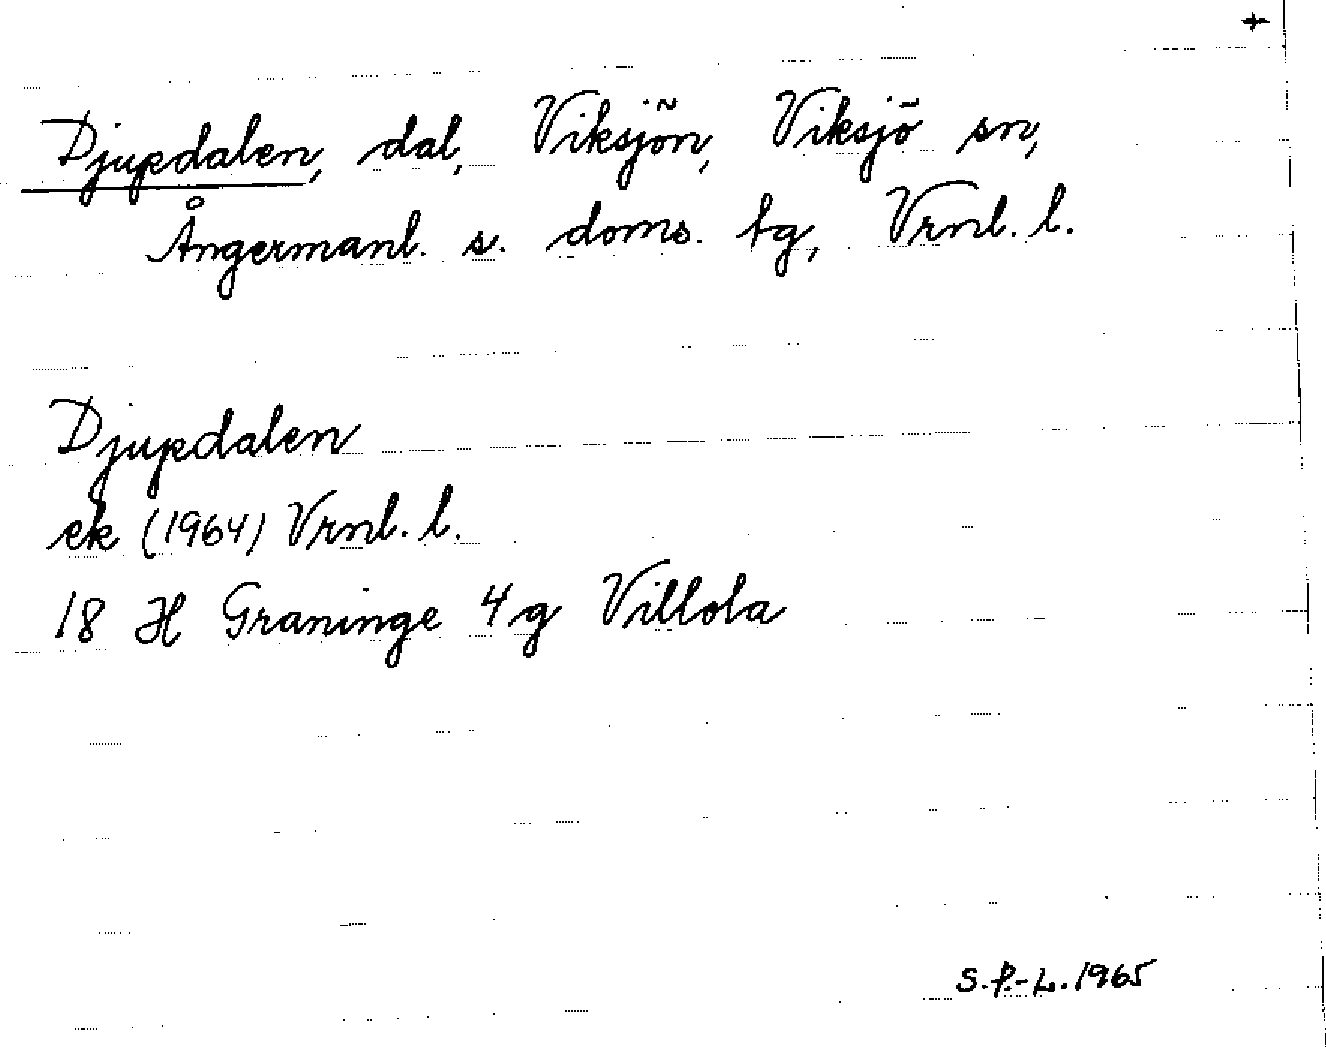 +
Djupdalen, dal, Viksjön, Viksjö sn,
Ångermanl. s. doms. tg, Vrnl. l.
Djupdalen
ek (1964) Vrnl. l.
18 H Graninge 4 g Villola
S.P.-L. 1965